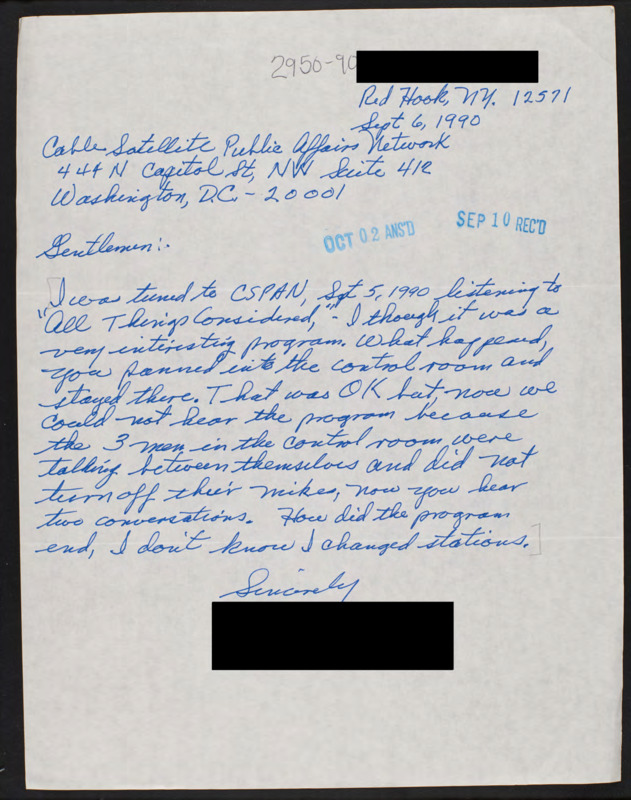 2950-90
Red Hook, NY. 12571
Sept 6, 1990
Cable Satellite Public Affairs Network
444 N Capitol St, NW Suite 412
Washington, D.C. - 20001
OCT 02 ANS'D
SEP 10 REC'D
Gentlemen:
[I was tuned to CSPAN, Sept 5, 1990 listening to
"All Things Considered," - I though it was a
very interesting program. What happened,
you panned into the control room and
stayed there. That was OK but, now we
could not hear the program because
the 3 men in the control room, were
talking between themselves and did not
turn off their mikes, now you hear
two conversations. How did the program
end, I don't know I changed stations.]
Sincerely